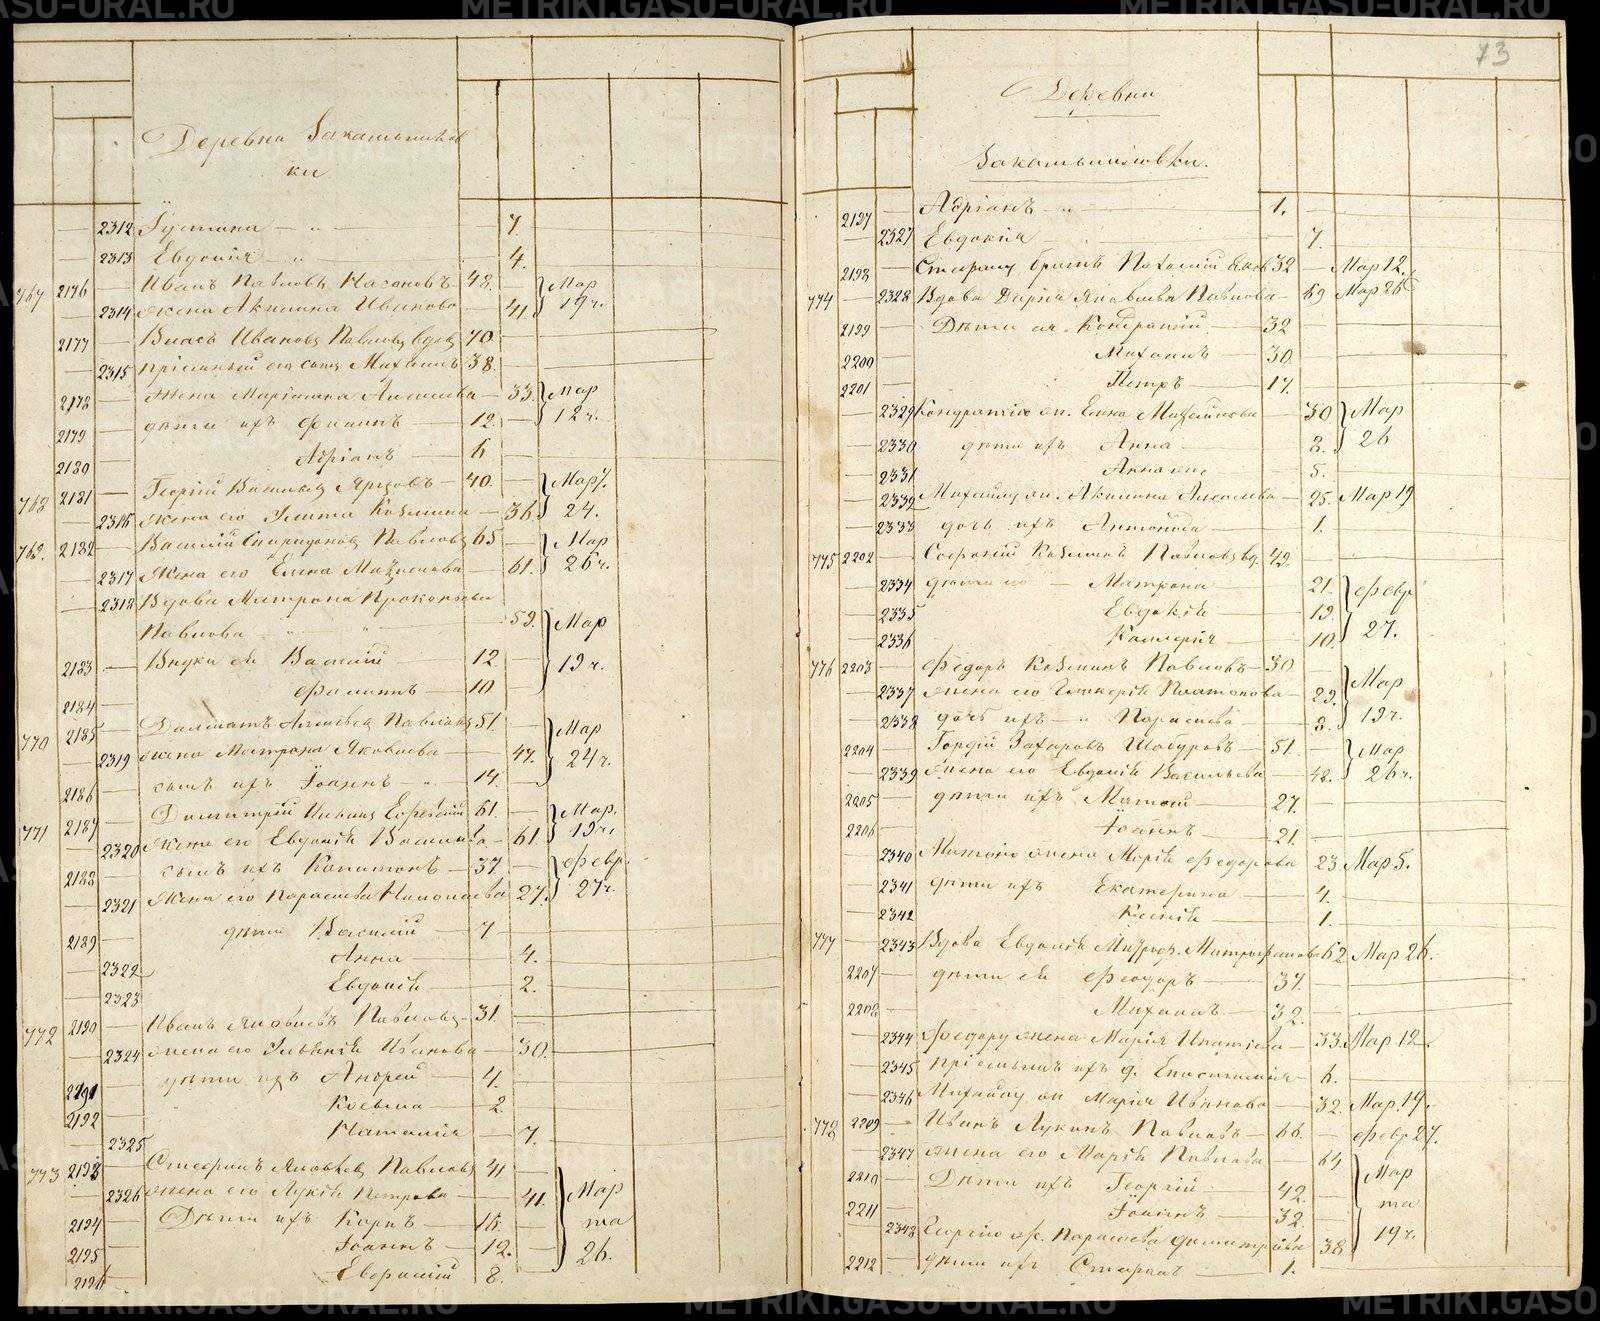 Деревна Закамышловки
2312 Іустина — 7.
2313 Евдокія 4.
767 2176 Иванъ Павловъ 48. Мар
2314 жена Акилина Иванова 41 19 ч.
2177 Власъ Ивановъ Павловъ вдов 70
2315 пріемный его сынъ Михаилъ 38.
2178 Жена Маріамна Алексеева 33. Мар
2179 дѣти ихъ Филипъ 12. 12 ч.
2180 Адріанъ 6
768 2181 Георгій Васильевъ 40. Мар.
2316 жена его Улита Козмина 36. 24.
769. 2182 Василій Спиридоновъ Павловъ 65 Мар
2317 Жена его Елена Михайлова 61. 26 ч.
2318 Вдова Матрона Прокопьева
Павлова 59. Мар
2183 Внуки ея Василій 12. 19 ч.
2184 Филиппъ 10
770 2185 Далматъ Алексеевъ Павловъ 51. Мар
2319 жена Матрона Яковлева 47. 24 ч.
2186 сынъ ихъ Іоаннъ 14.
771 2187 Димитрій 61. Мар.
2320 жена его Евдокія Василиева 61. 19 ч.
2188 сынъ ихъ Капитонъ 37. Февр.
2321 Жена его Параскева Николаева 27. 27 ч.
2189 дѣти Василій 7
2322 Анна 4.
2323 Евдокія 2.
772 2190 Иванъ Яковлевъ Павловъ 31.
2324 жена его Ульянія Иванова 30.
2191 дѣти ихъ Андрей 4.
2192 Косьма 2.
2325 Наталія 7.
773 2193 Стефанъ Яковлевъ Павловъ 41. Мар
2326 жена его Лукія Петрова 41. та
2194 Дѣти ихъ Карпъ 16.
2195 Іоаннъ 12. 26.
2196 Евфимій 8.
73
Деревни
Закамышловки.
2197 Адріанъ 1.
2327 Евдокія 7.
2198 Стефану братъ Пахомій Яков 32 Мар 12.
774 2328 Вдова Дарія Яковлева Павлова 69 Мар 26
2199 Дѣти ея Кондратій 32
2200 Михаилъ 30.
2201 Петръ 17.
2329 Кондратія ж. Елена Михайлова 30 Мар
2330 дѣти ихъ Анна 8. 26
2331 5.
2332 Михаилу ж. Акилина Алексеева 25. Мар 19
2333 дочь ихъ Антонида 1.
775 2202 Софоній Козминъ Павловъ вд. 49.
2334 дѣти его Матрона 21. Февр
2335 Евдокія 19.
2336 10. 27.
776 2203 Федоръ Козминъ Павловъ 30 Мар
2337 жена его Гликерія Платонова 29.
2338 дочь ихъ Параскева 8. 19 ч.
2204 Гордій Захаровъ Шабуровъ 51. Мар
2339 Жена его Евдокія Васильева 48. 26 ч.
2205 дѣти ихъ 27.
2206 Іоаннъ 21.
2340 жена Марія Федорова 23. Мар 5.
2341 дѣти ихъ Екатерина 4.
2342 Ксенія 1.
777 2343 Вдова Евдокія Митрофанова 62 Мар 26.
2207 дѣти ея Феодоръ 37.
2208 Михаилъ 32.
2344 Федору жена Марія Ипатіева 33. Мар 12.
2345 пріемышъ ихъ д. 6.
2346 Михайлу ж. Марія Иванова 32. Мар. 19.
778 2209 Иванъ Лукинъ Павловъ 66. Февр 27.
2347 жена его Марія Павлова 64 Мар
2210 Дѣти ихъ Георгій 42. та
2211 Іоаннъ 32.
2348 Георгію ж. Параскева Димитріева 38 19 ч.
2212 дѣти ихъ Стефанъ 1.
METRIKI.GASU-URAL.RU